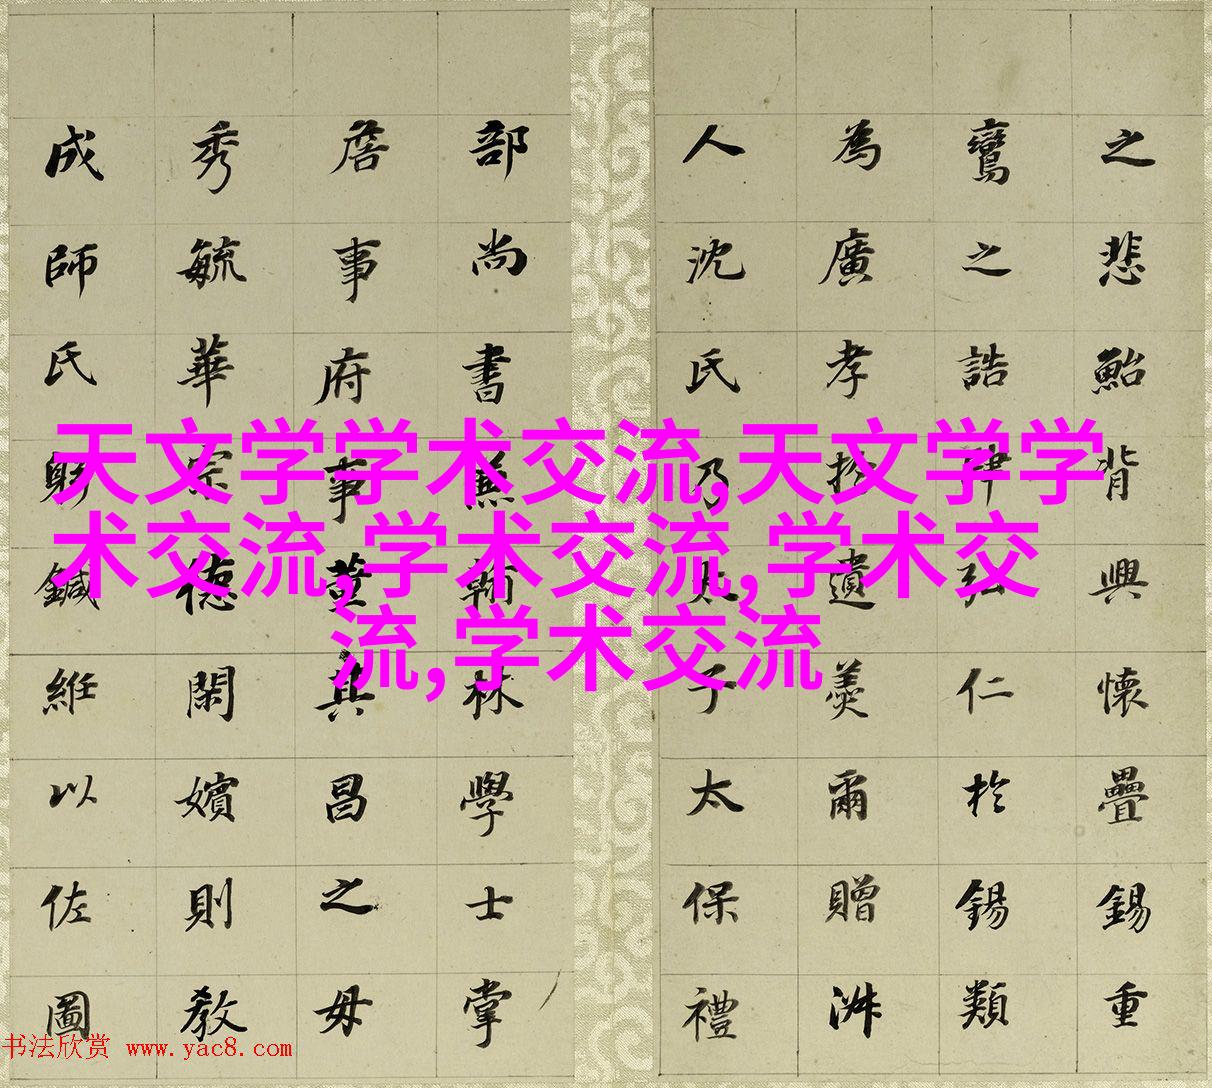 之悲鮐背興懷疊錫重
鸞之誥肆弘仁於錫類
為廣孝於遺羙爾贈淋
人沈氏乃太子太保禮
部尚書兼翰林學士掌
詹事府事黄其昌之毋
秀毓華宗德閑嬪則教
成師氏躬鍼維以佐圖
天文学学术交流,天文学学
术交流,学术交流,学术交
流,学术交流
书法欣赏 www.yac8.com